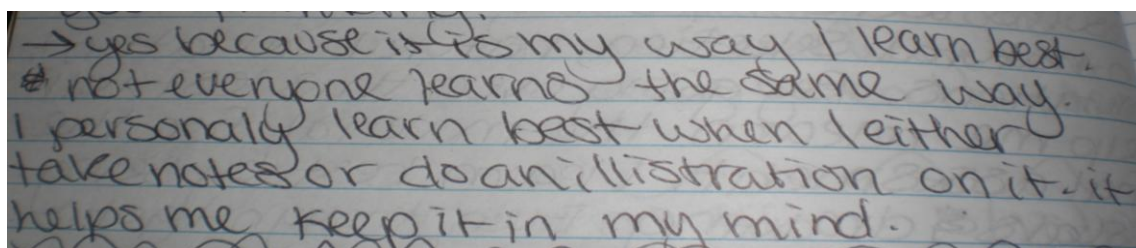 →yes because it is my way I learn best.
not everyone learns the same way.
I personaly learn best when I either
take notes or do an illistration on it. it
helps me keep it in my mind.